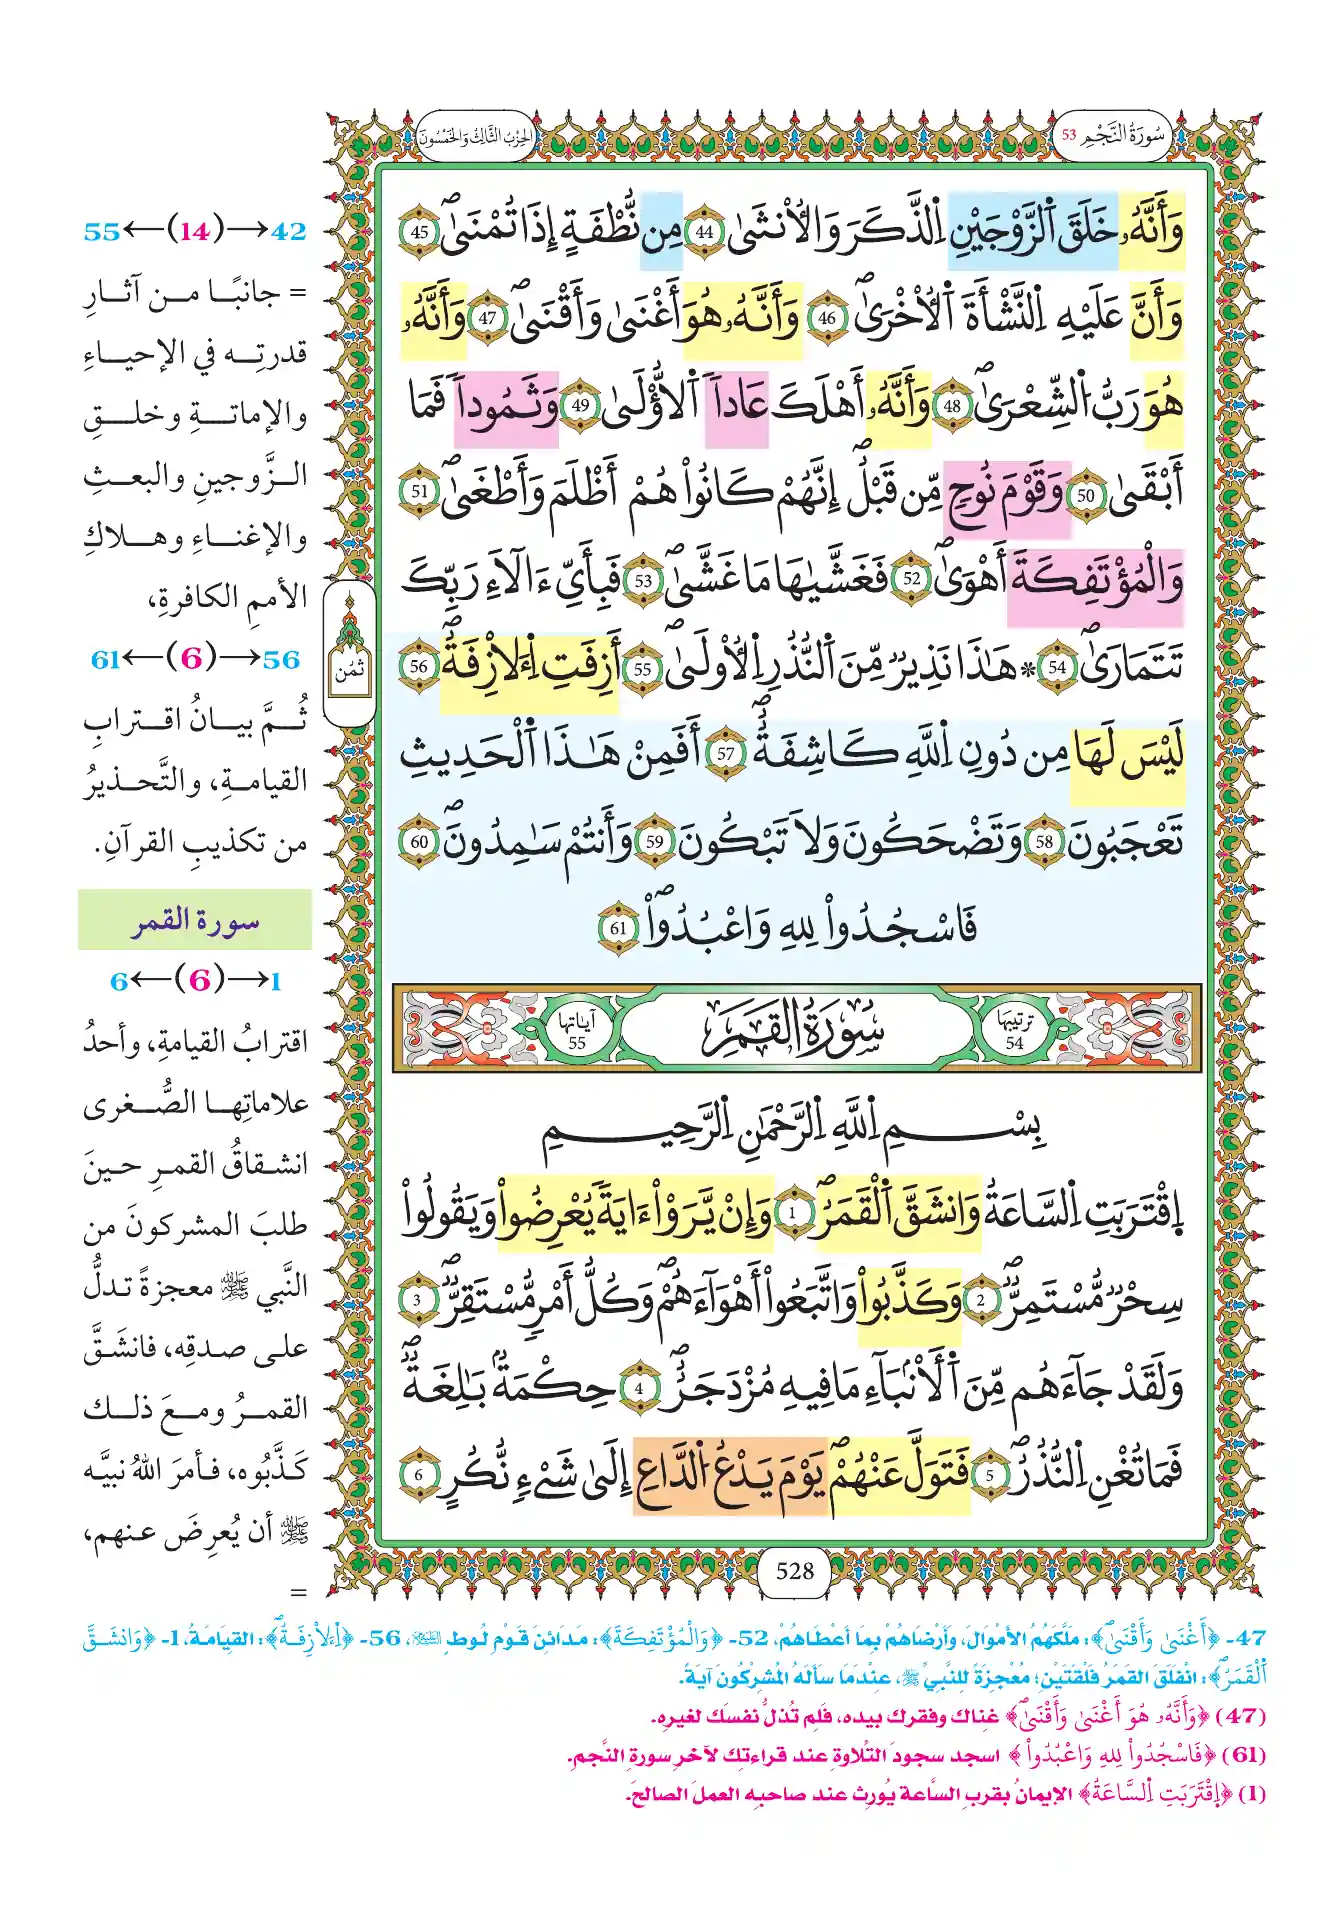 سُورَةُ النَّجْمِ 53
الحِزْبُ الثَّالِثُ وَالخَمْسُونَ
وَأَنَّهُۥ خَلَقَ اَ۬لزَّوْجَيْنِ اِ۬لذَّكَرَ وَالُانثَىٰ 44 مِن نُّطْفَةٍ اِذَا تُمْنَىٰۖ 45
وَأَنَّ عَلَيْهِ اِ۬لنَّشْأَةَ اَ۬لُاخْرَىٰۖ 46 وَأَنَّهُۥ هُوَ أَغْنَىٰ وَأَقْنَىٰۖ 47 وَأَنَّهُۥ
هُوَ رَبُّ اُ۬لشِّعْرَىٰۖ 48 وَأَنَّهُۥ أَهْلَكَ عَاداَ اَ۬لُّاولَىٰ 49 وَثَمُوداَ فَمَا
أَبْقَىٰ 50 وَقَوْمَ نُوحٍ مِّن قَبْلُۖ إِنَّهُمْ كَانُواْ هُمْ أَظْلَمَ وَأَطْغَىٰۖ 51
وَالْمُؤْتَفِكَةَ أَهْوَىٰۖ 52 فَغَشَّيٰهَا مَا غَشَّىٰۖ 53 فَبِأَيِّ ءَالَآءِ رَبِّكَ
تَتَمَارَىٰۖ 54 * هَٰذَا نَذِيرٌ مِّنَ اَ۬لنُّذُرِ اِ۬لُاولَىٰۖ 55 أَزِفَتِ اِ۬لَازِفَةُۖ 56
لَيْسَ لَهَا مِن دُونِ اِ۬للَّهِ كَاشِفَةٌۖ 57 أَفَمِنْ هَٰذَا اَ۬لْحَدِيثِ
تَعْجَبُونَ 58 وَتَضْحَكُونَ وَلَا تَبْكُونَ 59 وَأَنتُمْ سَٰمِدُونَۖ 60
فَاسْجُدُواْ لِلهِ وَاعْبُدُواْۖ 61
ثمن
ترتيبها 54 سُورَةُ القَمَرِ آياتها 55
بِسْمِ اِ۬للَّهِ اِ۬لرَّحْمَٰنِ اِ۬لرَّحِيمِ
اِ۪قْتَرَبَتِ اِ۬لسَّاعَةُ وَانشَقَّ اَ۬لْقَمَرُۖ 1 وَإِنْ يَّرَوْاْ ءَايَةً يُعْرِضُواْ وَيَقُولُواْ
سِحْرٌ مُّسْتَمِرٌّۖ 2 وَكَذَّبُواْ وَاتَّبَعُواْ أَهْوَآءَهُمْۖ وَكُلُّ أَمْرٍ مُّسْتَقِرٌّۖ 3
وَلَقَدْ جَآءَهُم مِّنَ اَ۬لَانۢبَآءِ مَا فِيهِ مُزْدَجَرٌۖ 4 حِكْمَةٌۢ بَٰلِغَةٌۖ
فَمَا تُغْنِ اِ۬لنُّذُرُۖ 5 فَتَوَلَّ عَنْهُمْۖ يَوْمَ يَدْعُ اُ۬لدَّاعِ إِلَىٰ شَےْءٖ نُّكُرٍ 6
528
42→(14)←55
= جانبًا من آثارِ
قدرتِه في الإحياءِ
والإماتةِ وخلقِ
الزَّوجينِ والبعثِ
والإغناءِ وهلاكِ
الأممِ الكافرةِ،
56→(6)←61
ثُمَّ بيانُ اقترابِ
القيامةِ، والتَّحذيرُ
من تكذيبِ القرآنِ.
سورة القمر
1→(6)←6
اقترابُ القيامةِ، وأحدُ
علاماتِها الصُّغرى
انشقاقُ القمرِ حينَ
طلبَ المشركونَ من
النَّبي ﷺ معجزةً تدلُّ
على صدقِه، فانشَقَّ
القمرُ ومعَ ذلك
كَذَّبُوه، فأمرَ اللهُ نبيَّه
ﷺ أن يُعرِضَ عنهم،
=
47- ﴿أَغْنَىٰ وَأَقْنَىٰۖ﴾: مَلَّكَهُمُ الأمْوَالَ، وأرْضَاهُمْ بِمَا أعْطَاهُمْ، 52- ﴿وَالْمُؤْتَفِكَةَ﴾: مَدَائِنَ قَوْمِ لُوطٍ عليه السلام، 56- ﴿اِ۬لَازِفَةُۖ﴾: القِيَامَةُ، 1- ﴿وَانشَقَّ
اَ۬لْقَمَرُۖ﴾: انْفَلَقَ القَمَرُ فَلْقَتَيْنِ؛ مُعْجِزَةً للنَّبِيِّ ﷺ، عِنْدَمَا سَأَلَهُ المُشْرِكُونَ آيَةً.
(47) ﴿وَأَنَّهُۥ هُوَ أَغْنَىٰ وَأَقْنَىٰۖ﴾ غِناك وفقرك بيده، فَلِم تُذلُّ نفسَك لغيرِه.
(61) ﴿فَاسْجُدُواْ لِلهِ وَاعْبُدُواْۖ﴾ اسجد سجودَ التِّلاوةِ عند قراءتِك لآخرِ سورةِ النَّجم.
(1) ﴿اِ۪قْتَرَبَتِ اِ۬لسَّاعَةُ﴾ الإيمانُ بقربِ السَّاعة يُورِث عند صاحبِه العملَ الصالحَ.